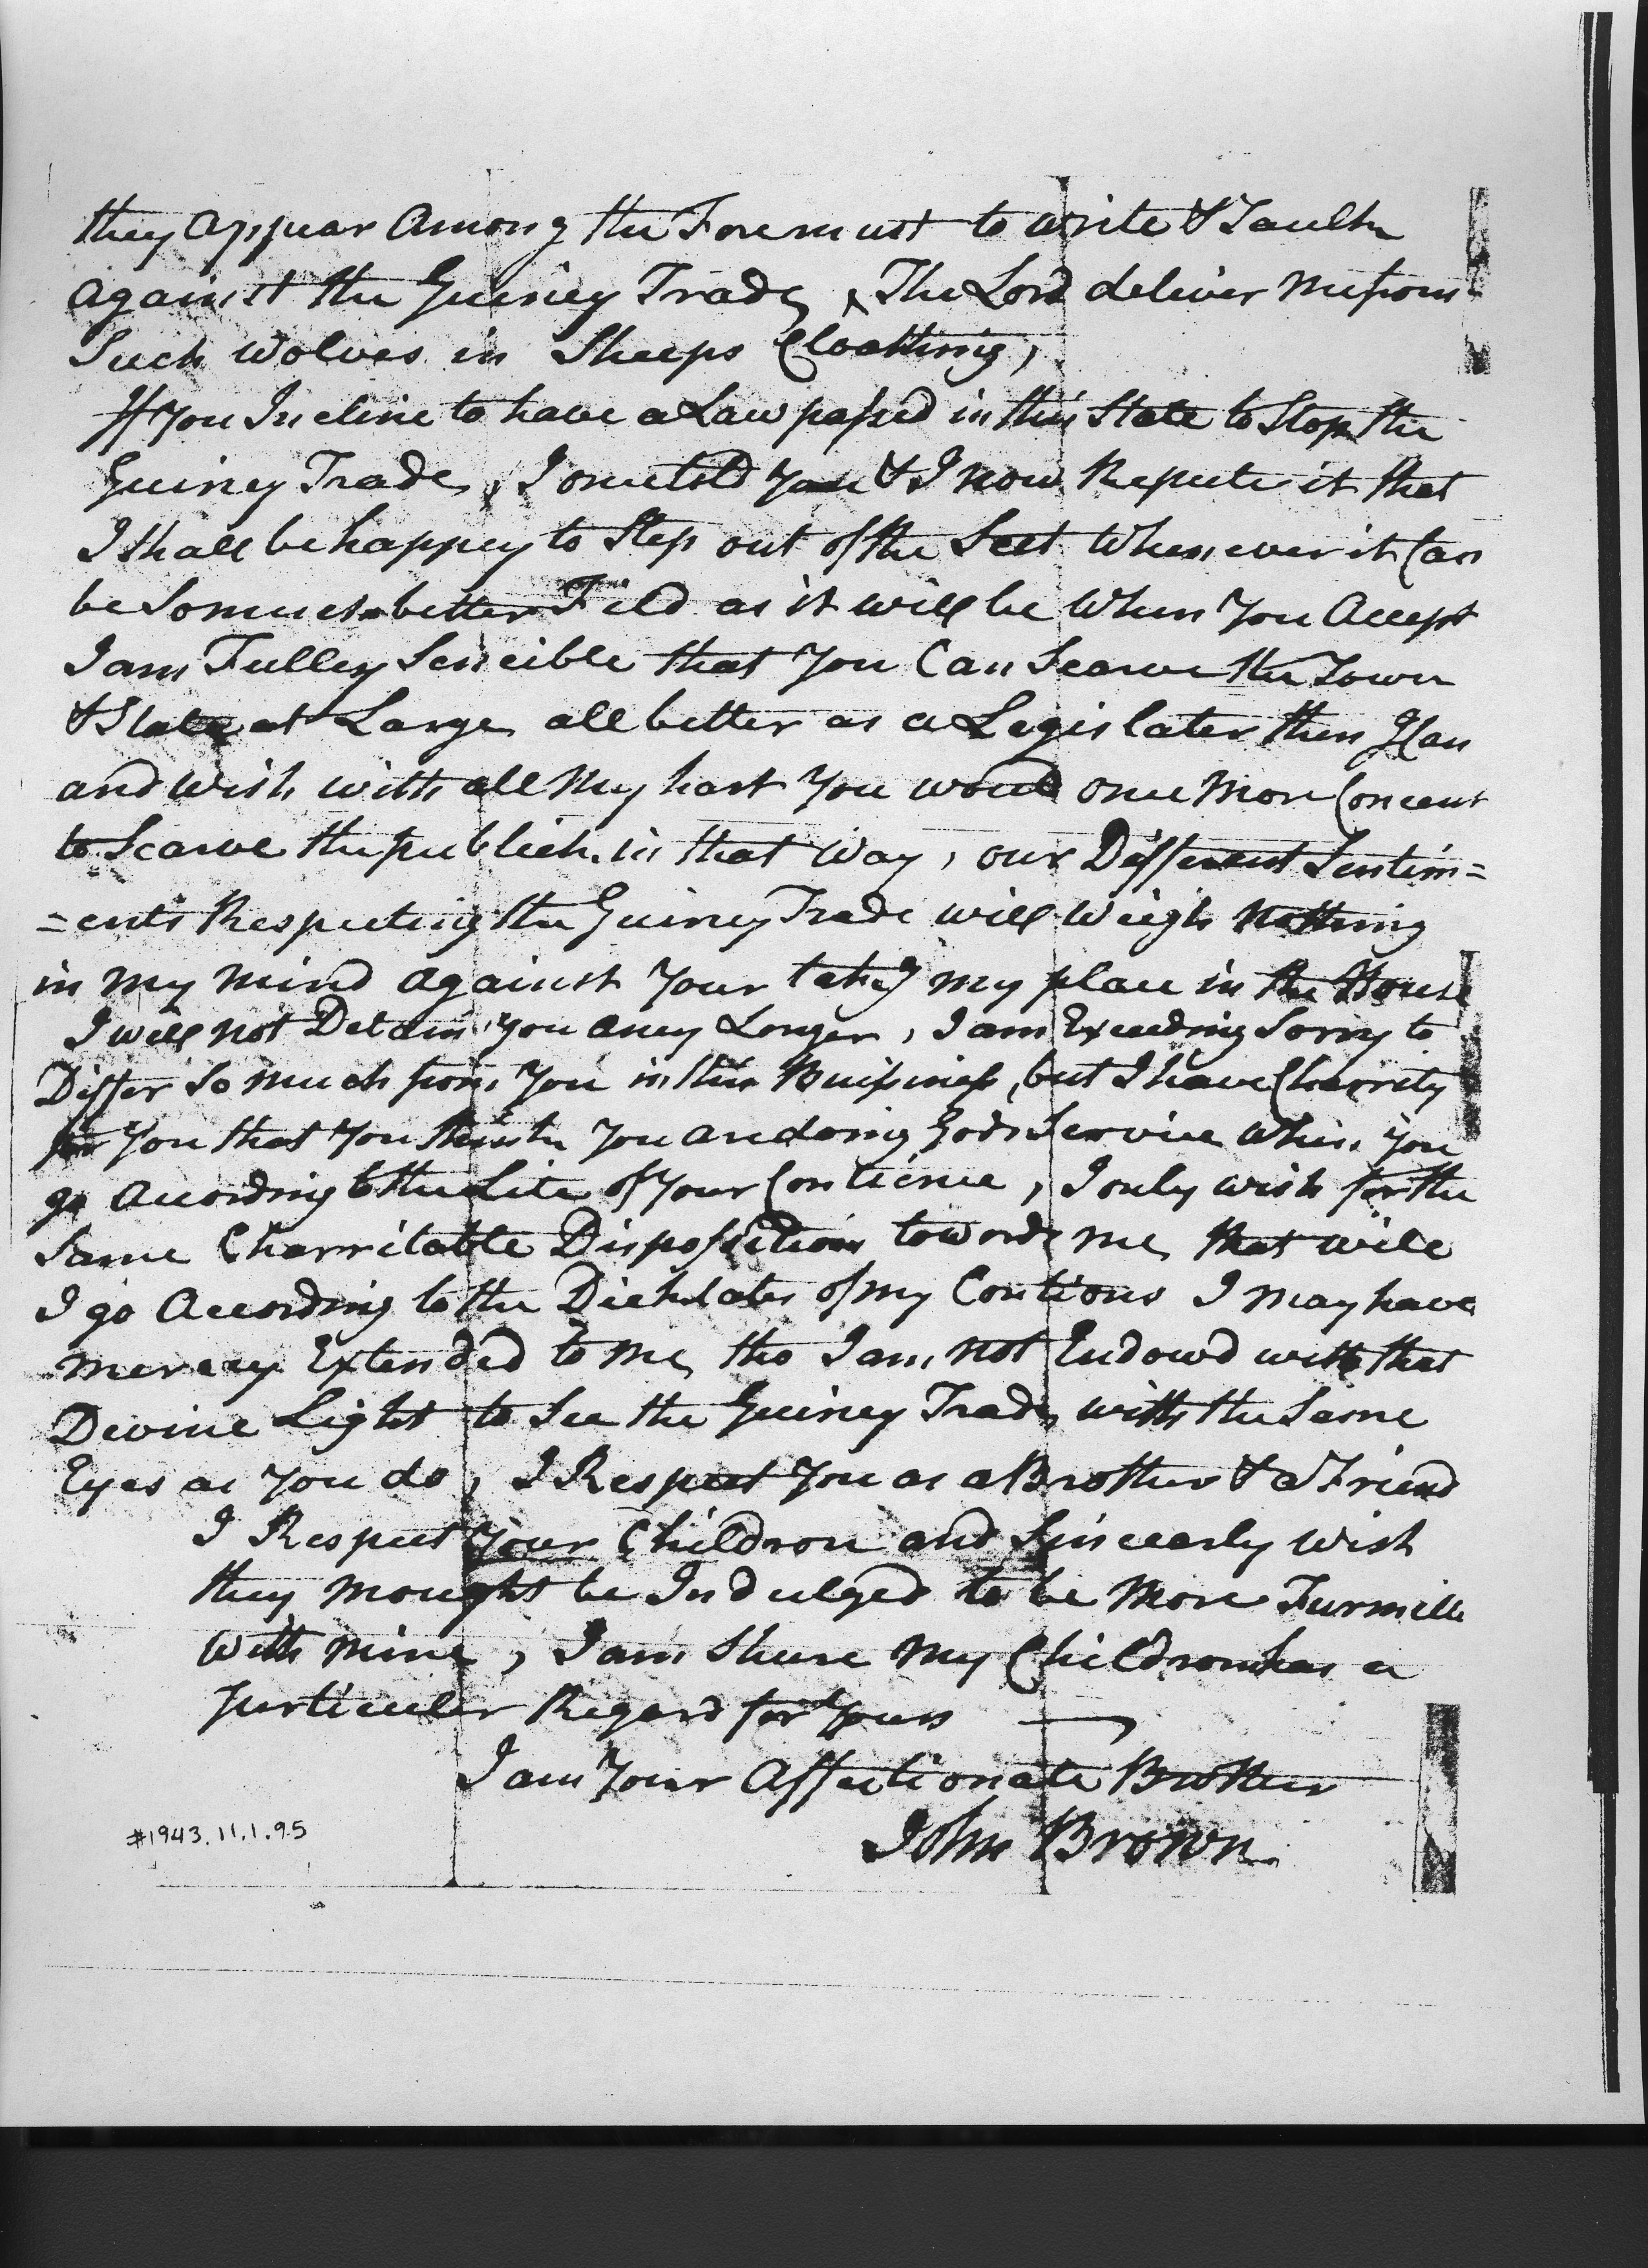 they appear Among the Foremust to write & Taulk
against the Guiney Trade, The Lord deliver me from
Such Wolves in Sheeps Cloathing,
If you Incline to have a Law passed in this State to Stop the
Guiney Trade, I onceold you & I now Repeate it that
I shall be happey to Step out of the Seet Whenever it Can
be so much better Fild as it will be When you Accept
I am Fulley Sencible that you Can Searve the Town
& State at Large all better as a Legislater then I Can
and wish with all my hart you would once more Concent
to Searve the publick in that way, our Different Sentim=
=ents Respecting the Guiney Trade will weigh nothing
in my mind against your takeg my place in the House
I will not Detain you aney Longer, I am Exceeding Sorry to
Differ so much from you in this Buissiness, but I have Charrity
for you that you think you are doing Gods Service when you
go Acording to the Lite of your Contience, I only wish for the
same Charritable Dispossition towords me that wile
I go According to the Dicktates of my Contions I may have
mercey Extended to me tho I am not Endowd with that
Devine Light to See the Guiney Trade with the Same
Eyes as you do, I Respect you as a Brother & a Friend
I Respect your Children and Sincearly wish
they mought be Indulged to be more Furmille
with mine, I am Shure my Children has a
purticuler Regard for yours
I am your Affectionate Brother
John Brown
#1943.11.1.95